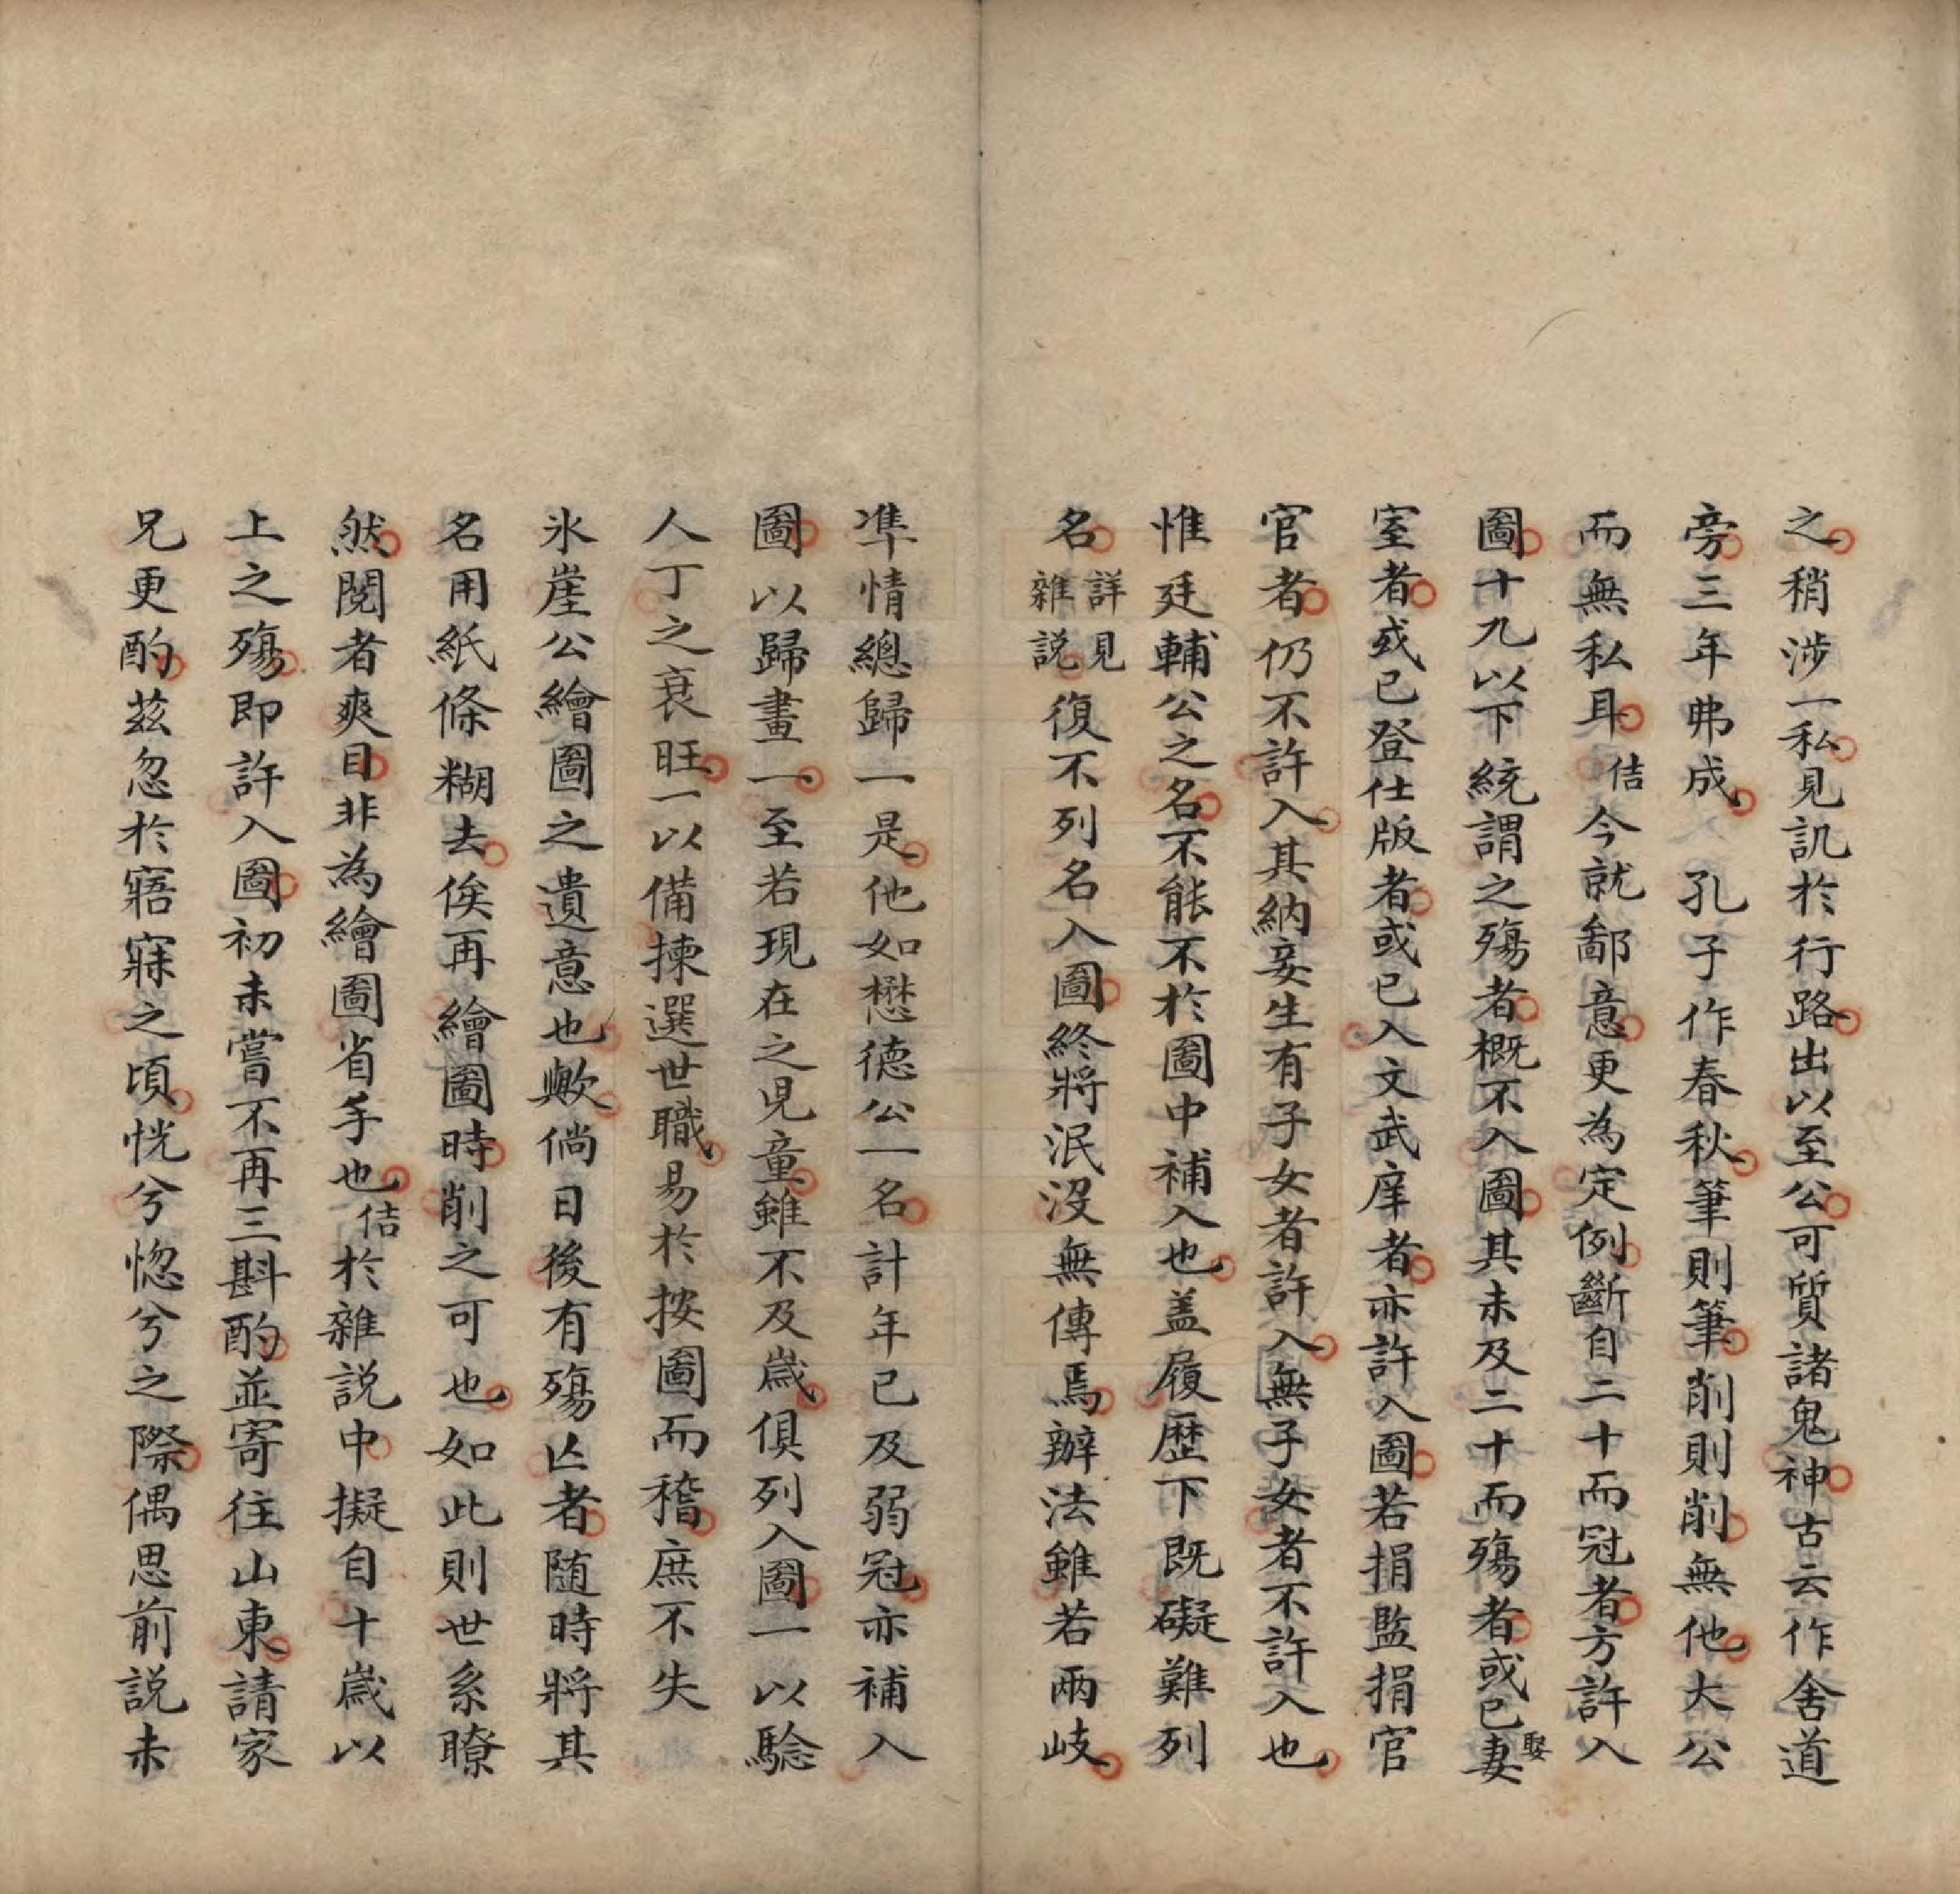 之稍涉一私見訊於行路出以至公可質諸鬼神古云作舍道
旁三年弗成孔子作春秋筆則筆削則削無他大公
而無私耳佶今就鄙意更為定例斷自二十而冠者方許入
圖十九以下統謂之殤者概不入圖其未及二十而殤者或已娶妻
室者或已登仕版者或已入文武庠者亦許入圖若捐監捐官
官者仍不許入其納妾生有子女者許入無子女者不許入也
惟廷輔公之名不能不於圖中補入也盖履歷下既礙難列
名詳見雜説復不列名入圖終將泯沒無傳焉辦法雖若兩岐
凖情總歸一是他如懋德公一名計年已及弱冠亦補入
圖以歸畫一至若現在之兒童雖不及歲俱列入圖一以騐
人丁之衰旺一以備揀選世職易於按圖而稽庶不失
氷崖公繪圖之遺意也歟倘日後有殤亾者随時將其
名用紙條糊去俟再繪圖時削之可也如此則世系瞭
然閱者爽目非為繪圖省手也佶於雜説中擬自十歲以
上之殤即許入圖初未嘗不再三斟酌並寄往山東請家
兄更酌茲忽於寤寐之頃恍兮惚兮之際偶思前説未